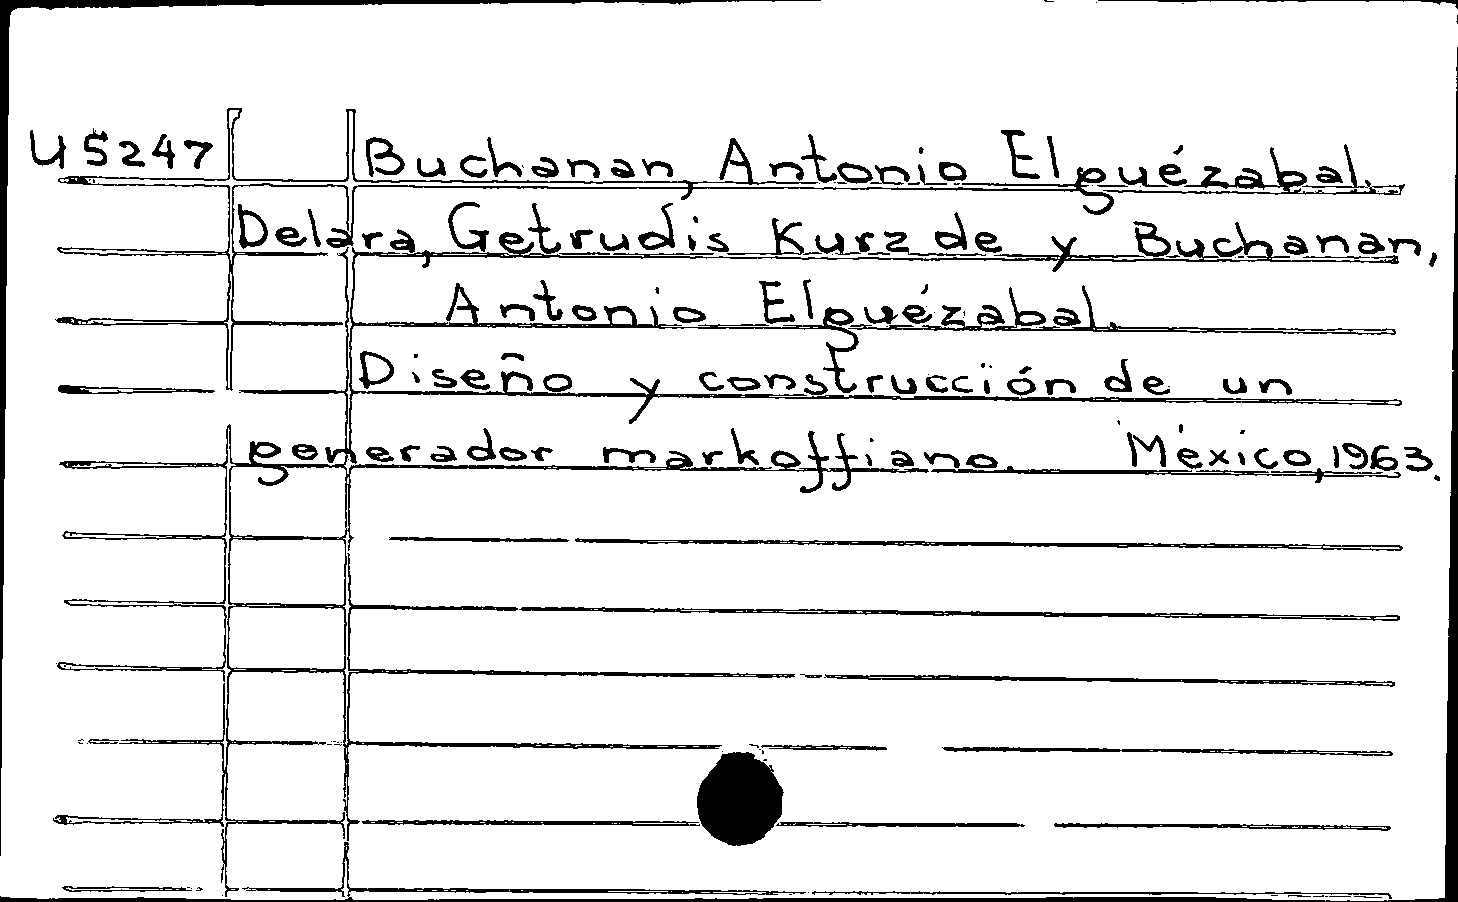 U5247 Buchanan, Antonio Elguézabal.
Delara, Getrudis Kurz de y Buchanan,
Antonio Elguézabal.
Diseño y construcción de un
generador markoffiano. México, 1963.